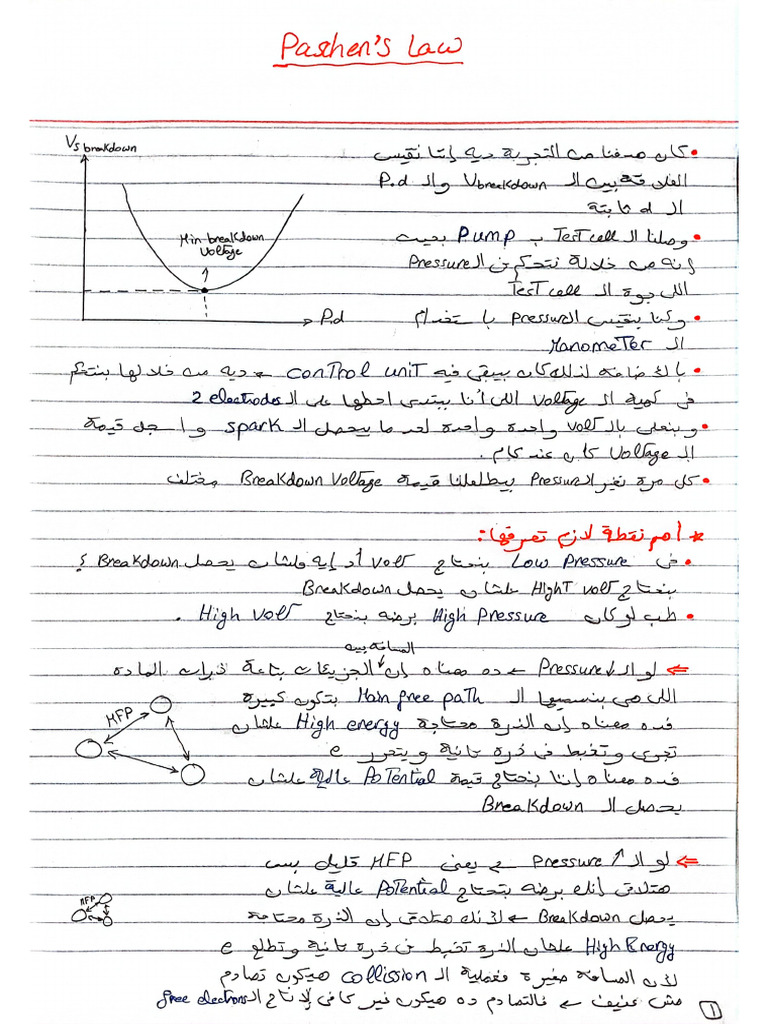 Paschen's Law
Vs breakdown
Min breakdown
Voltage
P.d
• كان هدفنا من التجربة ديه إننا نقيس
العلاقة بين الـ Vbreakdown والـ P.d
الـ d ثابتة
• وصلنا الـ Test cell بـ Pump بحيث
إنه من خلاله نتحكم في الـ Pressure
اللي جوة الـ Test cell
• وكنا بنقيس الـ Pressure باستخدام
الـ Manometer
• بالإضافة لذلك كان بيبقى فيه control unit ← ديه من خلالها بنتحكم
في كمية الـ Voltage اللي أنا ببتدي احطها على الـ 2 electrodes
• وبنعلي بالـ Volt واحدة واحدة لحد ما يحصل الـ spark واسجل قيمة
الـ Voltage كان عند كام .
• كل مرة نغير الـ Pressure بيطلعلنا قيمة Breakdown Voltage مختلف
* أهم نقطة لازم تعرفها:
• في Low Pressure بنحتاج Volt أد إيه علشان يحصل Breakdown ؟
بنحتاج HighT volt علشان يحصل Breakdown
• طب لو كان High Pressure برضه بنحتاج High Volt .
المسافة بين
⇐ لو الـ Pressure↓ ← ده معناه إن الجزيئات بتاعة ذرات المادة
اللي هي بنسميها الـ Main free path بتكون كبيرة
فده معناه إن الذرة محتاجة High energy علشان
تجري وتخبط في ذرة تانية ويتحرر e
فده معناه إننا بنحتاج قيمة Potential عالية علشان
يحصل الـ Breakdown
MFP
⇐ لو الـ Pressure↑ ← يعني MFP قليل بس
هتلاقي إنك برضه بتحتاج Potential عالية علشان
يحصل Breakdown ← لأنك هتلاقي إن الذرة محتاجة
High Energy علشان الذرة تخبط في ذرة تانية وتطلع e
لأن المسافة صغيرة فعملية الـ collission هيكون تصادم
مش عنيف ← فالتصادم ده هيكون غير كافي لإنتاج الـ free electrons
MFP
1